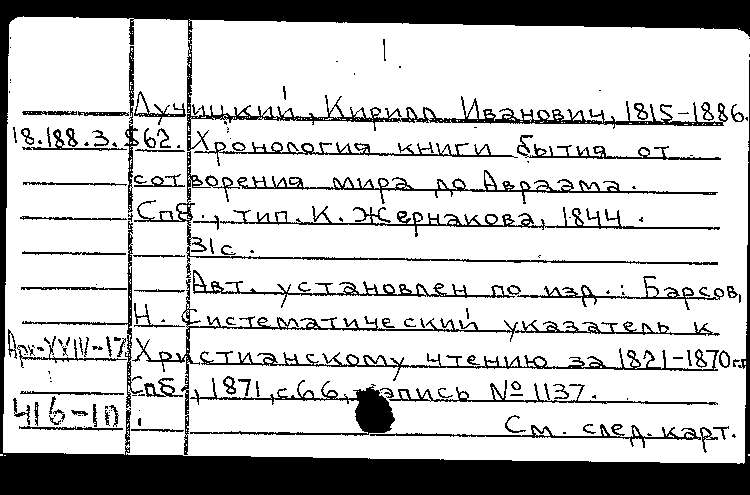 1.
Лучицкий, Кирилл Иванович, 1815-1886.
18.188.3.562. Хронология книги бытия от
сотворения мира до Авраама.
Спб., тип. К. Жернакова, 1844.
31с.
Авт. установлен по изд.: Барсов,
Н. Систематический указатель к
Христианскому чтению за 1821-1870г.г
Спб., 1871, с.66, запись № 1137.
См. след. карт.
416-1п